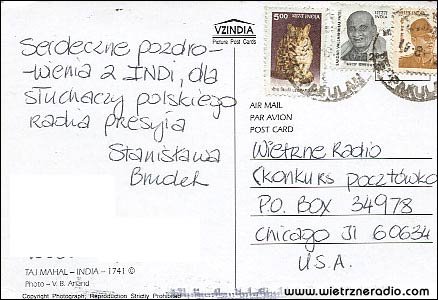 VZINDIA
Picture Post Cards
Serdeczne pozdro-
-wienia z INDI, dla
słuchaczy polskiego
radia presyła
Stanisława
Brudek
5.00 भारत INDIA
AIR MAIL
PAR AVION
POST CARD
Wietrzne Radio
(konkurs pocztówko
P.O. BOX 34978
Chicago Jl 60634
U.S.A.
TAJ MAHAL – INDIA – 1741 ©
Photo – V. B. Anand
Copyright Photograph; Reproduction Strictly Prohibited
www.wietrzneradio.com